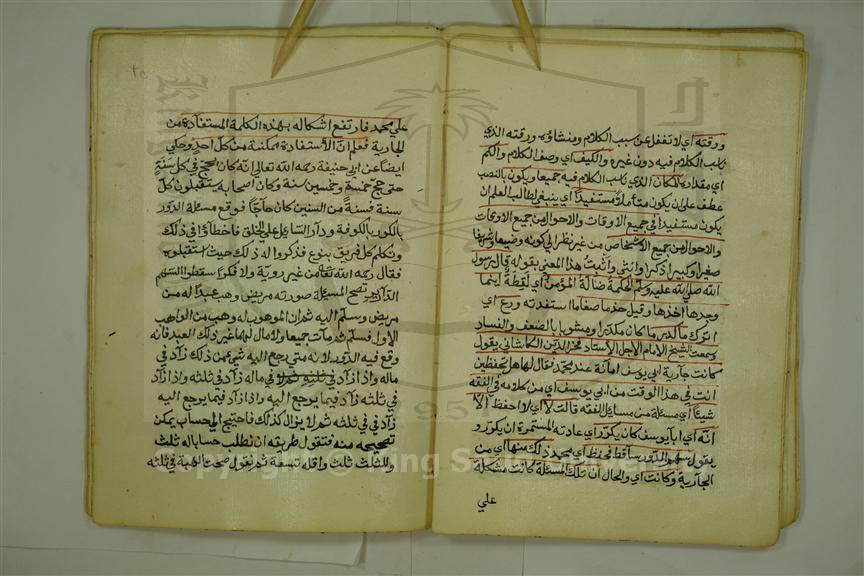 ورقته أي لا تغفل عن سبب الكلام ومنشاؤه ورقته الذي
الكلام فيه دون غيره والكيف أي وصف الكلام والكم
أي مقداره الكلام فيه جميعا ويكون بالنصب
عطف على ان يكون متأملا مستفيدا أي ينبغي لطالب العلم ان
يكون مستفيدا في جميع الاوقات والاحوال من جميع الاوقات
والاحوال من جميع الاشخاص من غير نظر الى كونه وضيعا وشريفا
صغيرا وكبيرا ذكرا وانثى واثبت هذا المعنى بقوله قال رسول
الله صلى الله عليه وسلم الحكمة ضالة المؤمن أي لقطة اينما
وجدها اخذها وقيل خذ ما صفا ما استفدته ودع أي
اترك ما كدر ما كان مكدرا ومشوبا بالضعف والفساد
وسمعت الشيخ الامام الاجل الاستاد فخر الدين الكاشاني يقول
كانت جارية ابي يوسف امانة عند محمد فقال لها هل تحفظين
انت في هذا الوقت من ابي يوسف أي من كلامه في الفقه
شيئا أي مسئلة من مسائل الفقه قالت لا أي لا احفظ الا
انه أي ابا يوسف كان يكرر أي عادته المستمرة ان يكرر و
يقول سهم الدور ساقط فحفظ أي محمد ذلك منها أي من
الجارية وكانت أي والحال ان تلك المسئلة كانت مشكلة
علي
٢٥
على محمد فارتفع اشكاله بهذه الكلمة المستفادة من
الجارية فعلم ان الاستفادة ممكنة من كل احد وحكي
ايضا عن ابي حنيفة رحمه الله تعالى انه كان الحج في كل سنة
حتى حج خمسة وخمسين سنة وكان اصحابه يستقبلون كل
سنة فسنة من السنين كان حاجا فوقع مسئلة الدور
بالكوفة ودار السائل على الخلق فاخطأوا في ذلك
وتكلم كل فريق بنوع فذكروا له ذلك حيث استقبلوه
فقال رحمه الله تعالى من غير روية ولا فكر اسقطوا السهم
الدائر تصح المسئلة صورته مريض وهب عبدا له من
مريض وسلم اليه ثم ان الموهوب له وهب من الواهب
الاول فسلم ثم مات جميعا ولا مال لهما غير ذلك العبد فانه
وقع فيه الدور لانه متى رجع اليه شيئ من ذلك زاد في
ماله واذا زاد في ماله زاد في ثلثه واذا زاد
في ثلثه زاد فيما يرجع اليه واذا زاد فيما يرجع اليه
زاد في ثلثه ثم لا يزال كذلك فاحتيج الى حساب يمكن
تصحيحه منه فتقول طريقه ان تطلب حسابا له ثلث
وللثلث ثلث واقله تسعة ثم تقول صحت الهبة في ثلثه
Copyright © King Saud University
1957